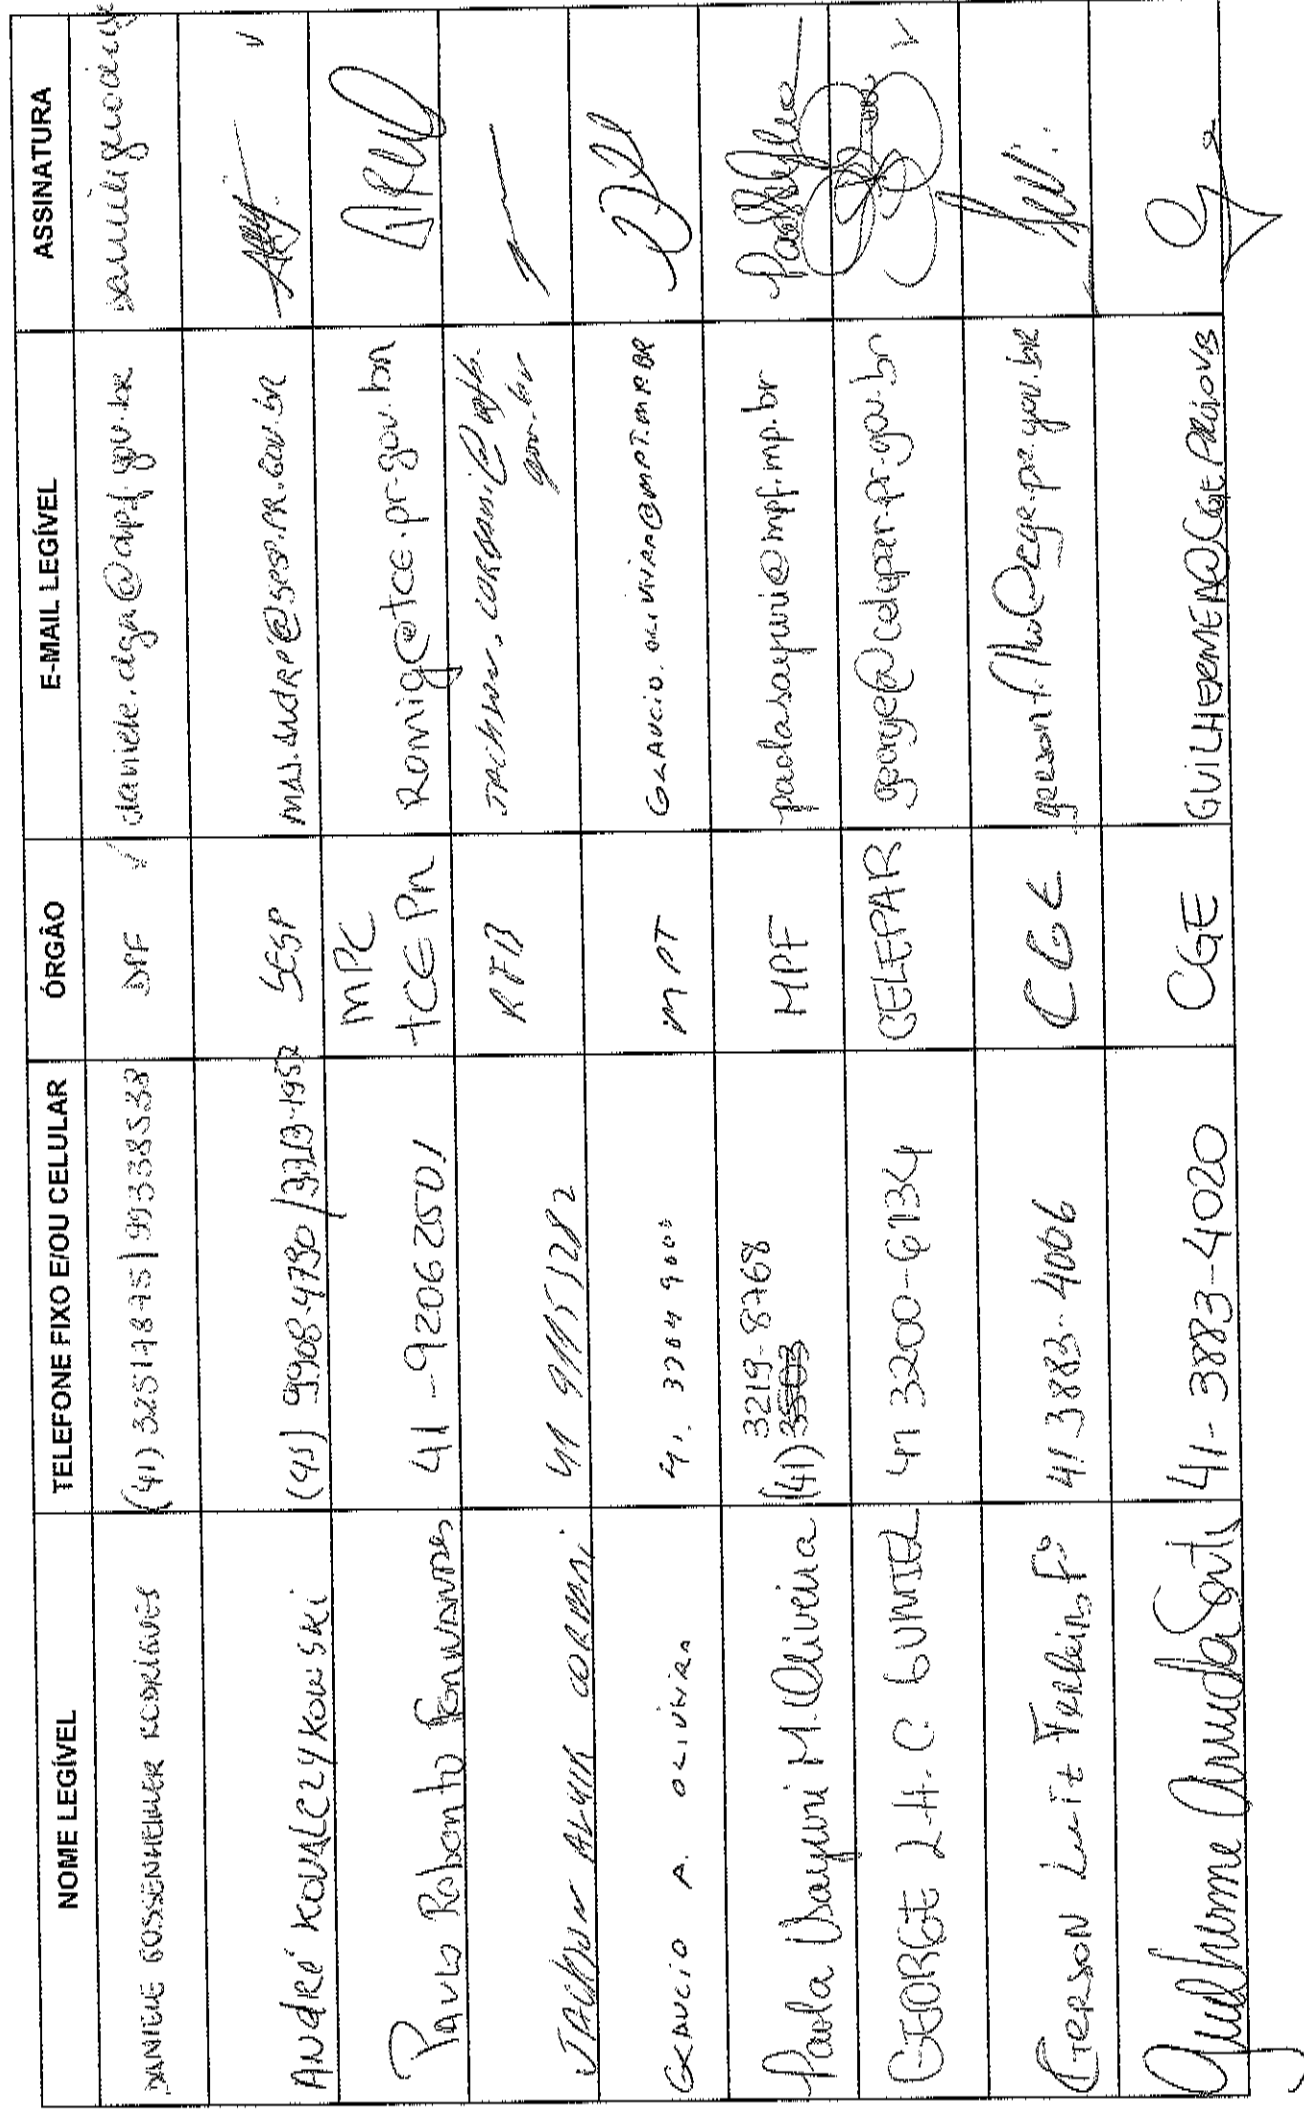 NOME LEGÍVEL TELEFONE FIXO E/OU CELULAR ÓRGÃO E-MAIL LEGÍVEL ASSINATURA
DANIELE GOSSENHEIMER RODRIGUES (41) 32517875 | 99338538 DPF daniele.dgr@dpf.gov.br
ANDRÉ KOWALCZYKOWSKI (41) 9908-4730 / 3313-1952 SESP MAJ.ANDRE@SESP.PR.GOV.BR
Paulo Roberto Fernandes 41-92062501 MPC
TCE Pr Romig@tce.pr.gov.br
JACKSON ALUIR CORBARI 41 91115 1282 RFB JACKSON.CORBARI@rfb.
gov.br
GLAUCIO A. OLIVEIRA 41. 3304 9000 MPT GLAUCIO.OLIVEIRA@MPT.MP.BR
Paola Sayuri M. Oliveira 3219-8768
(41) MPF paolasayuri@mpf.mp.br
GEORGE L.H.C. 41 3200-6134 CELEPAR george@celepar.pr.gov.br
GERSON Luiz Fº 41 3883-4006 CGE
Guilherme Arruda 41-3883-4020 CGE